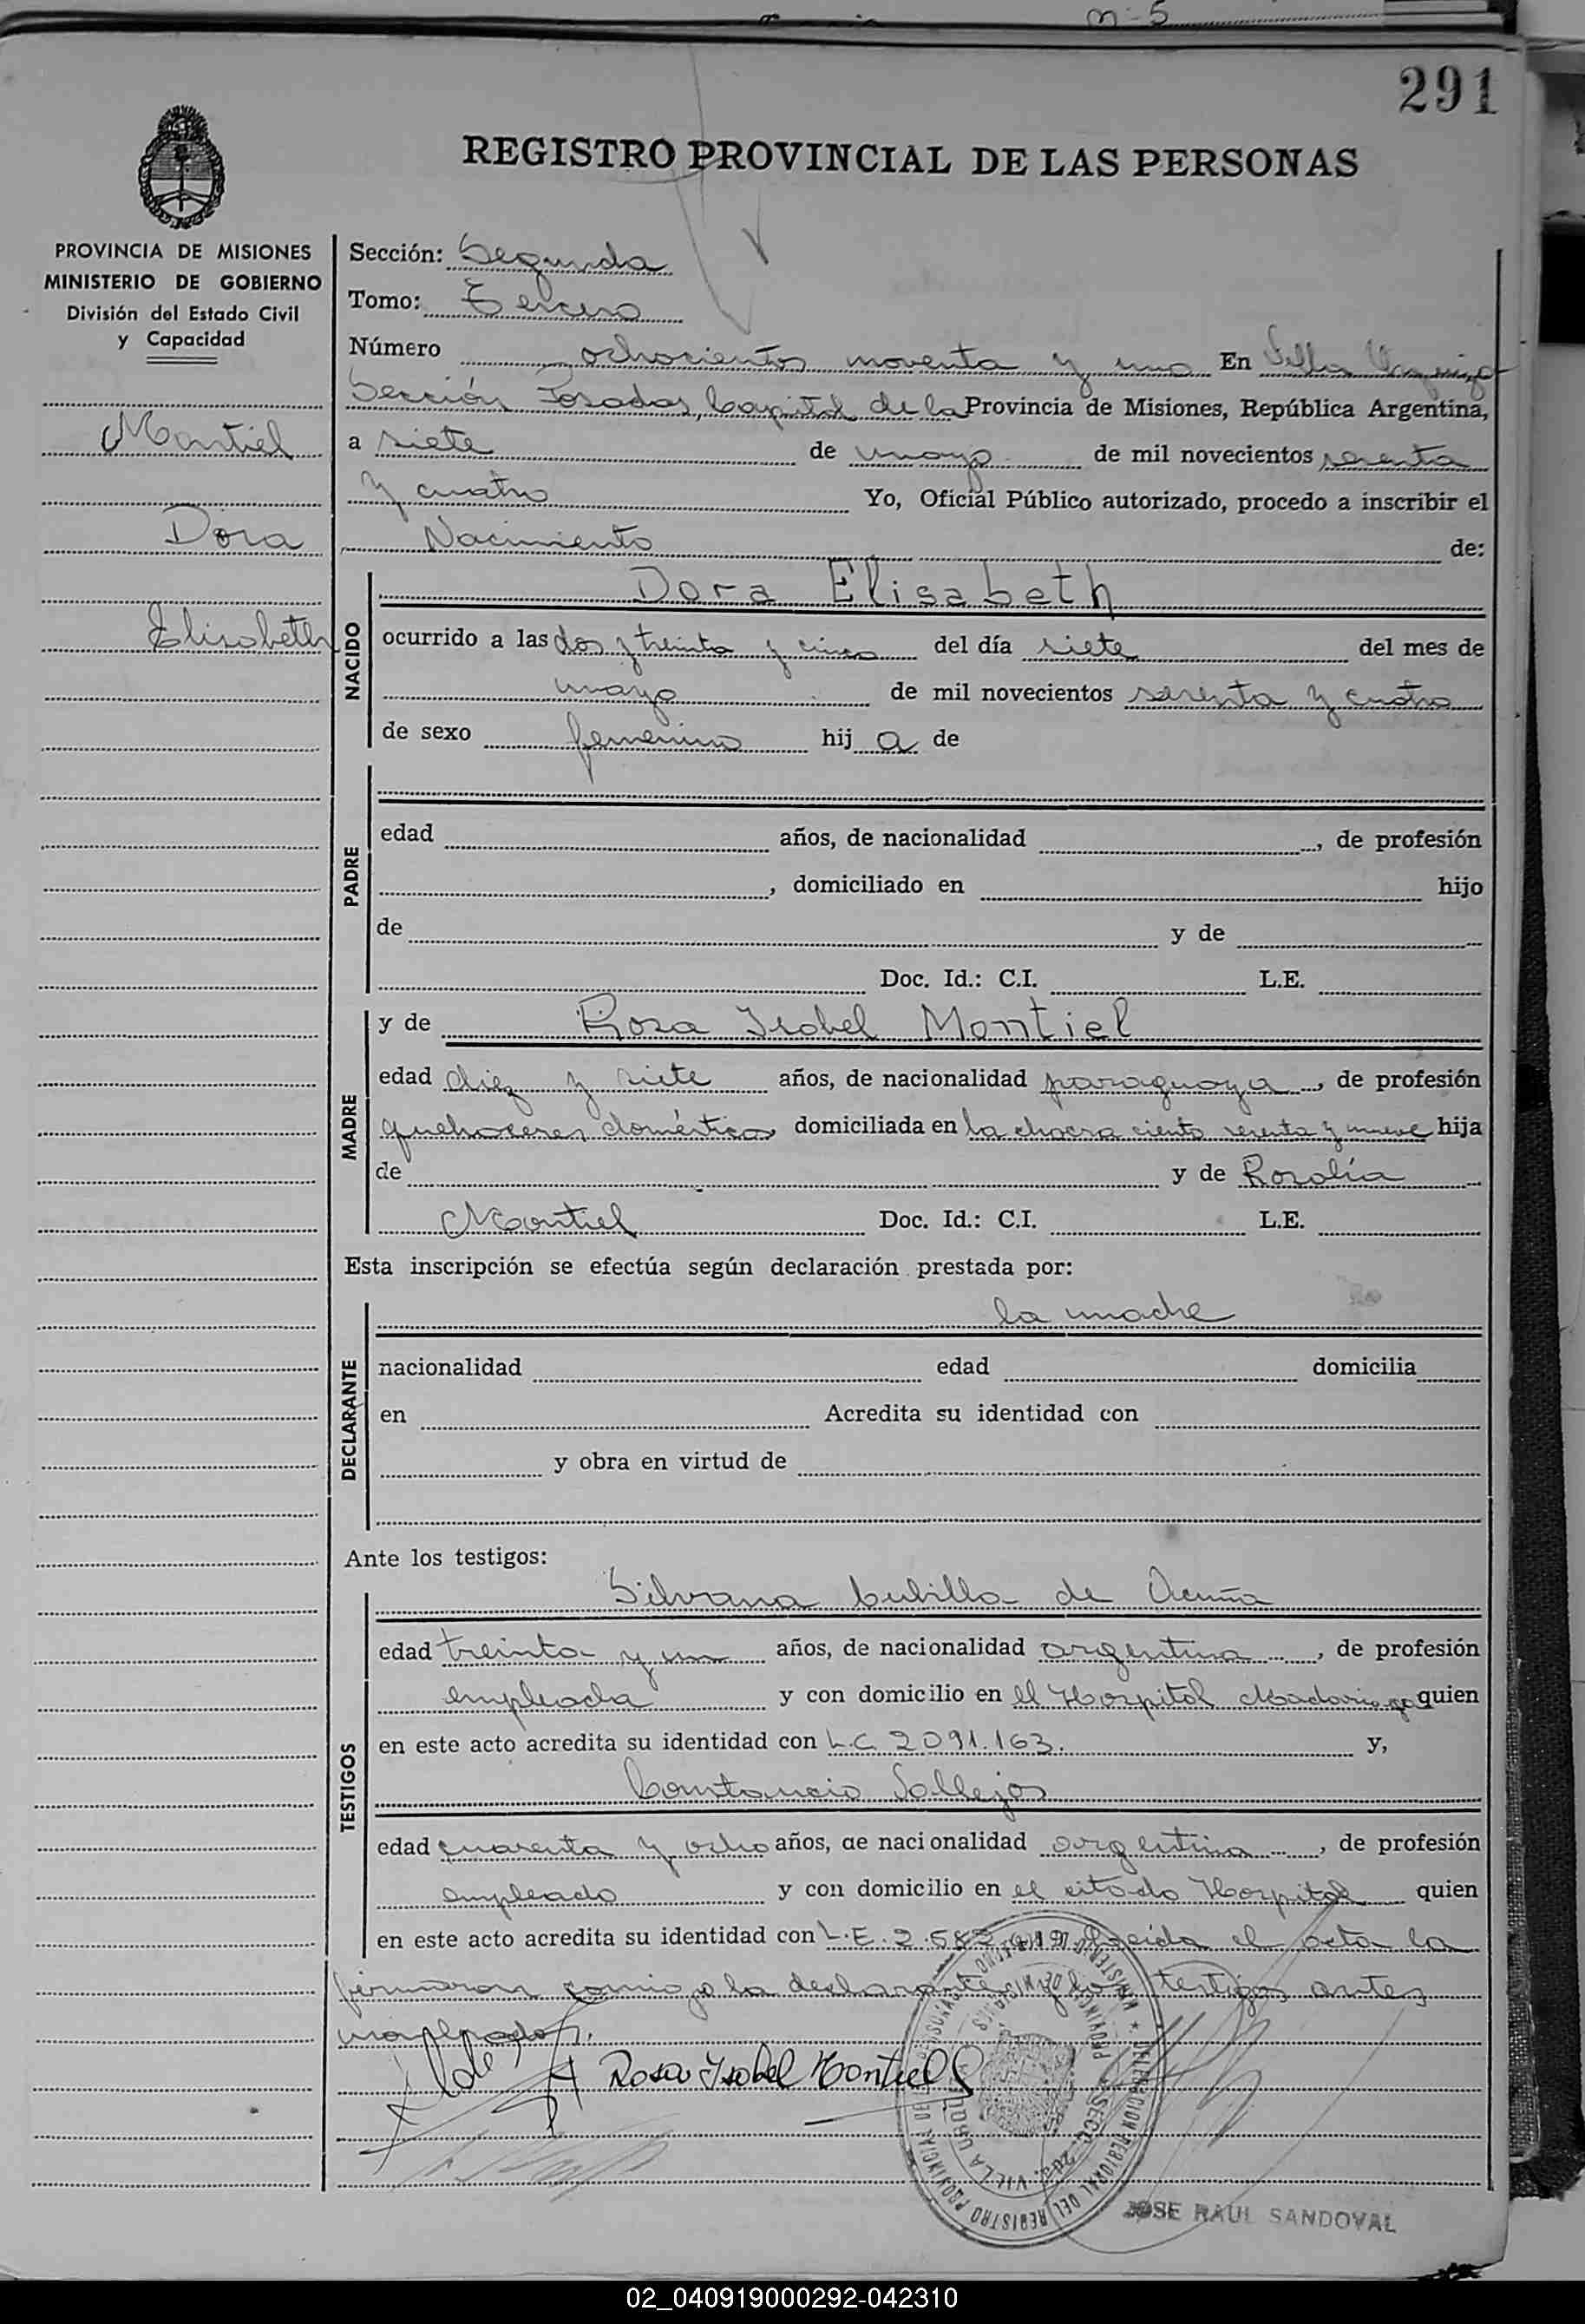 nº 5
291
REGISTRO PROVINCIAL DE LAS PERSONAS
PROVINCIA DE MISIONES
MINISTERIO DE GOBIERNO
División del Estado Civil
y Capacidad
Montiel
Dora
Elisabeth
Sección: Segunda
Tomo: Tercero
Número ochocientos noventa y uno En Villa Urquiza
Sección Posadas, Capital de la Provincia de Misiones, República Argentina,
a siete de mayo de mil novecientos setenta
y cuatro Yo, Oficial Público autorizado, procedo a inscribir el
Nacimiento de:
NACIDO
Dora Elisabeth
ocurrido a las dos y treinta y cinco del día siete del mes de
mayo de mil novecientos setenta y cuatro
de sexo femenino hij a de
PADRE
edad años, de nacionalidad , de profesión
, domiciliado en hijo
de y de
Doc. Id.: C.I. L.E.
MADRE
y de Rosa Isabel Montiel
edad diez y siete años, de nacionalidad paraguaya , de profesión
quehaceres domésticos domiciliada en la chacra ciento setenta y nueve hija
de y de Rosalía
Montiel Doc. Id.: C.I. L.E.
Esta inscripción se efectúa según declaración prestada por:
DECLARANTE
la madre
nacionalidad edad domicilia
en Acredita su identidad con
y obra en virtud de
Ante los testigos:
TESTIGOS
Silvana Cubilla de Acuña
edad treinta y un años, de nacionalidad argentina , de profesión
empleada y con domicilio en el Hospital Madariaga quien
en este acto acredita su identidad con L.C. 2091.163. y,
Constancio Vallejos
edad cuarenta y ocho años, de nacionalidad argentina , de profesión
empleado y con domicilio en el citado Hospital quien
en este acto acredita su identidad con L.E. Leida el acta la
firmaron conmigo la declarante y los testigos antes
nombrados.
Rosa Isabel Montiel
DELEGACION REGIONAL DEL REGISTRO PROVINCIAL DE
JOSE RAUL SANDOVAL
02_040919000292-042310